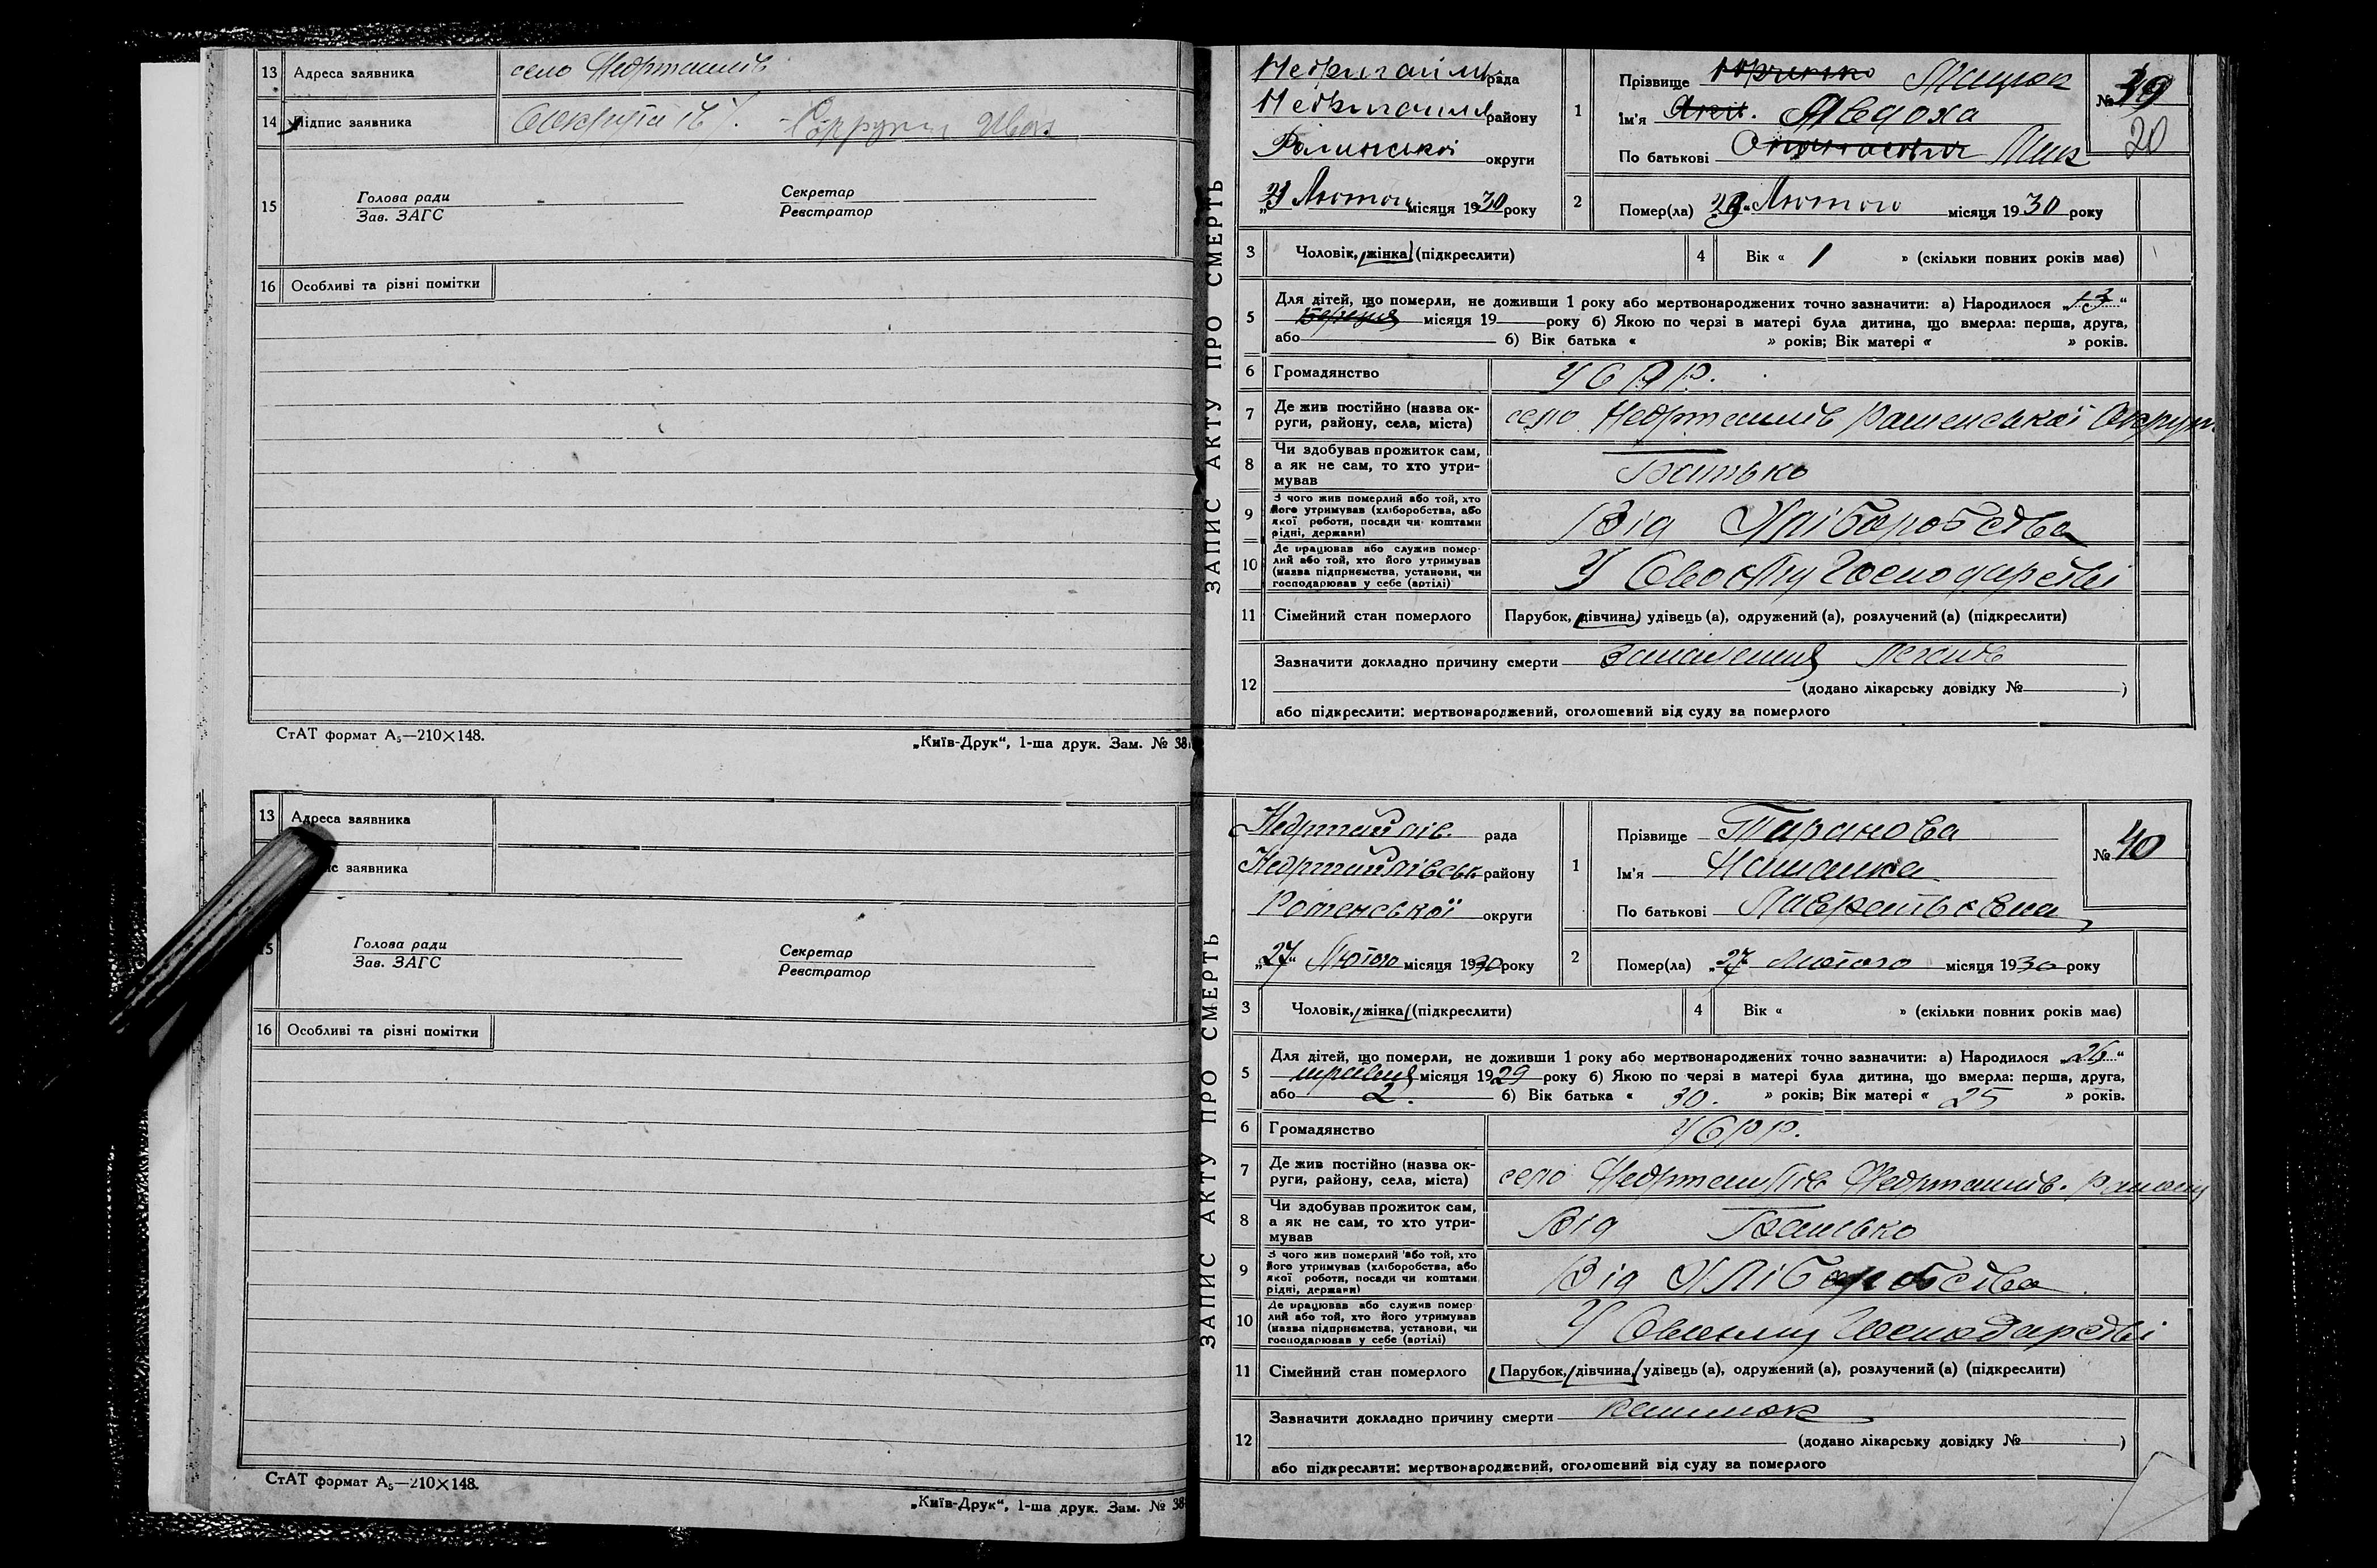 13 Адреса заявника село
14 Підпис заявника
15 Голова ради
Зав. ЗАГС
Секретар
Реєстратор
16 Особливі та різні помітки
СтАТ формат А₅—210×148.
„Київ-Друк“, 1-ша друк. Зам. № 38
ЗАПИС АКТУ ПРО СМЕРТЬ
рада
району
округи
Лютого місяця 1930 року
1 Прізвище
Ім'я Явдоха
По батькові
№ 39
20
2 Помер(ла) Лютого місяця 1930 року
3 Чоловік, жінка (підкреслити)
4 Вік « 1 » (скільки повних років має)
5 Для дітей, що померли, не доживши 1 року або мертвонароджених точно зазначити: а) Народилося „13“
місяця 19 року б) Якою по черзі в матері була дитина, що вмерла: перша, друга,
або б) Вік батька « » років; Вік матері « » років.
6 Громадянство УСРР.
7 Де жив постійно (назва ок-
руги, району, села, міста) село
8 Чи здобував прожиток сам,
а як не сам, то хто утри-
мував Батько
9 З чого жив померлий або той, хто
його утримував (хліборобства, або
якої роботи, посади чи коштами
рідні, держави) Від Хліборобства
10 Де працював або служив помер-
лий або той, хто його утримував
(назва підприємства, установи, чи
господарював у себе (артілі) У Своєму Господарстві
11 Сімейний стан померлого Парубок, дівчина, удівець (а), одружений (а), розлучений (а) (підкреслити)
12 Зазначити докладно причину смерти Запалення
(додано лікарську довідку № )
або підкреслити: мертвонароджений, оголошений від суду за померлого
13 Адреса заявника
заявника
15 Голова ради
Зав. ЗАГС
Секретар
Реєстратор
16 Особливі та різні помітки
СтАТ формат А₅—210×148.
„Київ-Друк“, 1-ша друк. Зам. № 38
ЗАПИС АКТУ ПРО СМЕРТЬ
рада
району
Роменської округи
„27“ Лютого місяця 1930 року
1 Прізвище Таранова
Ім'я
По батькові
№ 40
2 Помер(ла) „27 Лютого місяця 1930 року
3 Чоловік, жінка (підкреслити)
4 Вік « » (скільки повних років має)
5 Для дітей, що померли, не доживши 1 року або мертвонароджених точно зазначити: а) Народилося „26“
травня місяця 1929 року б) Якою по черзі в матері була дитина, що вмерла: перша, друга,
або 2. б) Вік батька « 30. » років; Вік матері « 25 » років.
6 Громадянство УСРР.
7 Де жив постійно (назва ок-
руги, району, села, міста) село
8 Чи здобував прожиток сам,
а як не сам, то хто утри-
мував Від Батько
9 З чого жив померлий або той, хто
його утримував (хліборобства, або
якої роботи, посади чи коштами
рідні, держави) Від Хліборобства
10 Де працював або служив помер-
лий або той, хто його утримував
(назва підприємства, установи, чи
господарював у себе (артілі) У Своєму Господарстві
11 Сімейний стан померлого Парубок, дівчина, удівець (а), одружений (а), розлучений (а) (підкреслити)
12 Зазначити докладно причину смерти
(додано лікарську довідку № )
або підкреслити: мертвонароджений, оголошений від суду за померлого